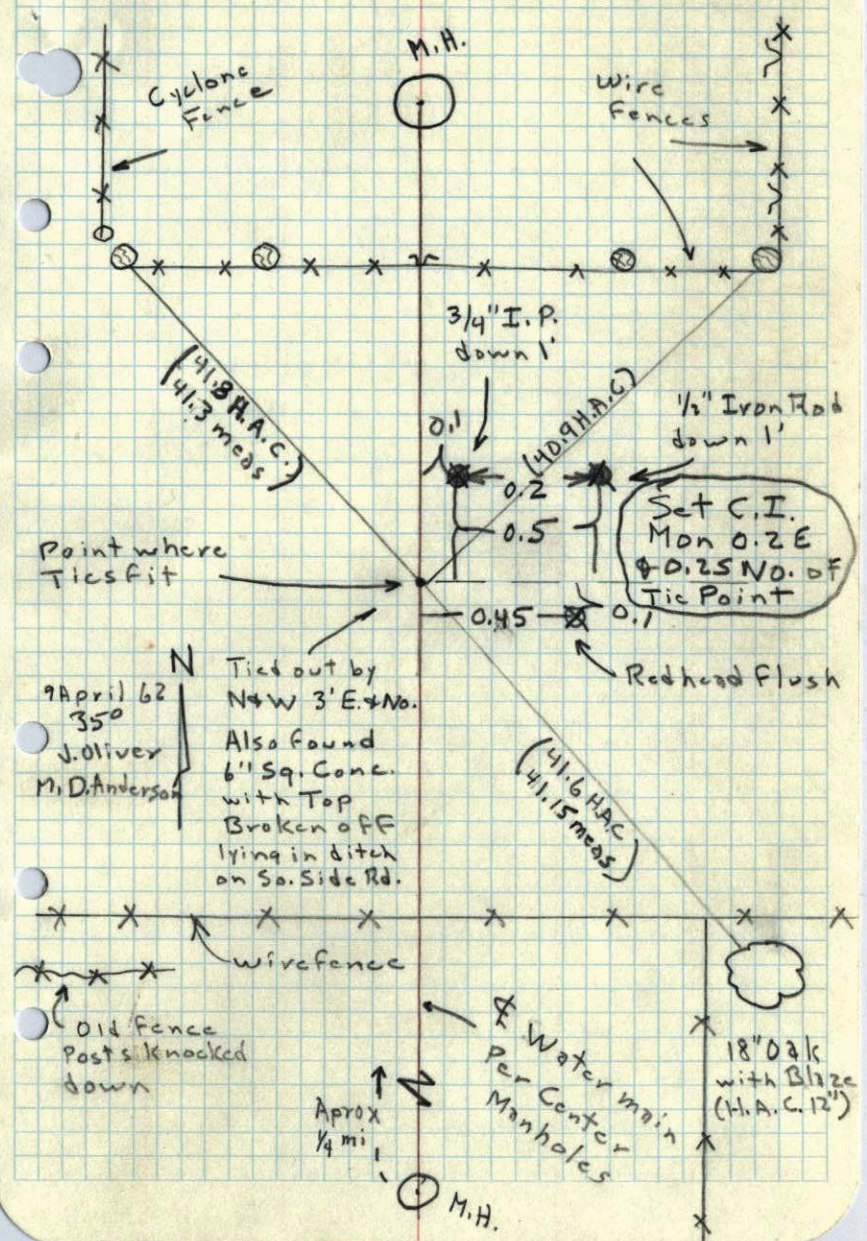 M.H.
Cyclone
Fence
Wire
Fences
3/4" I.P.
down 1'
(41.8 H.A.C.
41.3 meas)
(40.9 H.A.C)
0.1
1/2" Iron Rod
down 1'
0.2
0.5
Set C.I.
Mon 0.2 E
& 0.25 No. of
Tie Point
Point where
Ties fit
0.45
0.1
Redhead Flush
N
9 April 62
35°
J. Oliver
M. D. Anderson
Tied out by
N&W 3' E. & No.
Also found
6" Sq. Conc.
with Top
Broken off
lying in ditch
on So. Side Rd.
(41.6 HAC
41.15 meas)
wire fence
Old Fence
Posts Knocked
down
℄ Water main
Per Center
Manholes
18" Oak
with Blaze
(H.A.C. 12")
Aprox
1/4 mi
M.H.